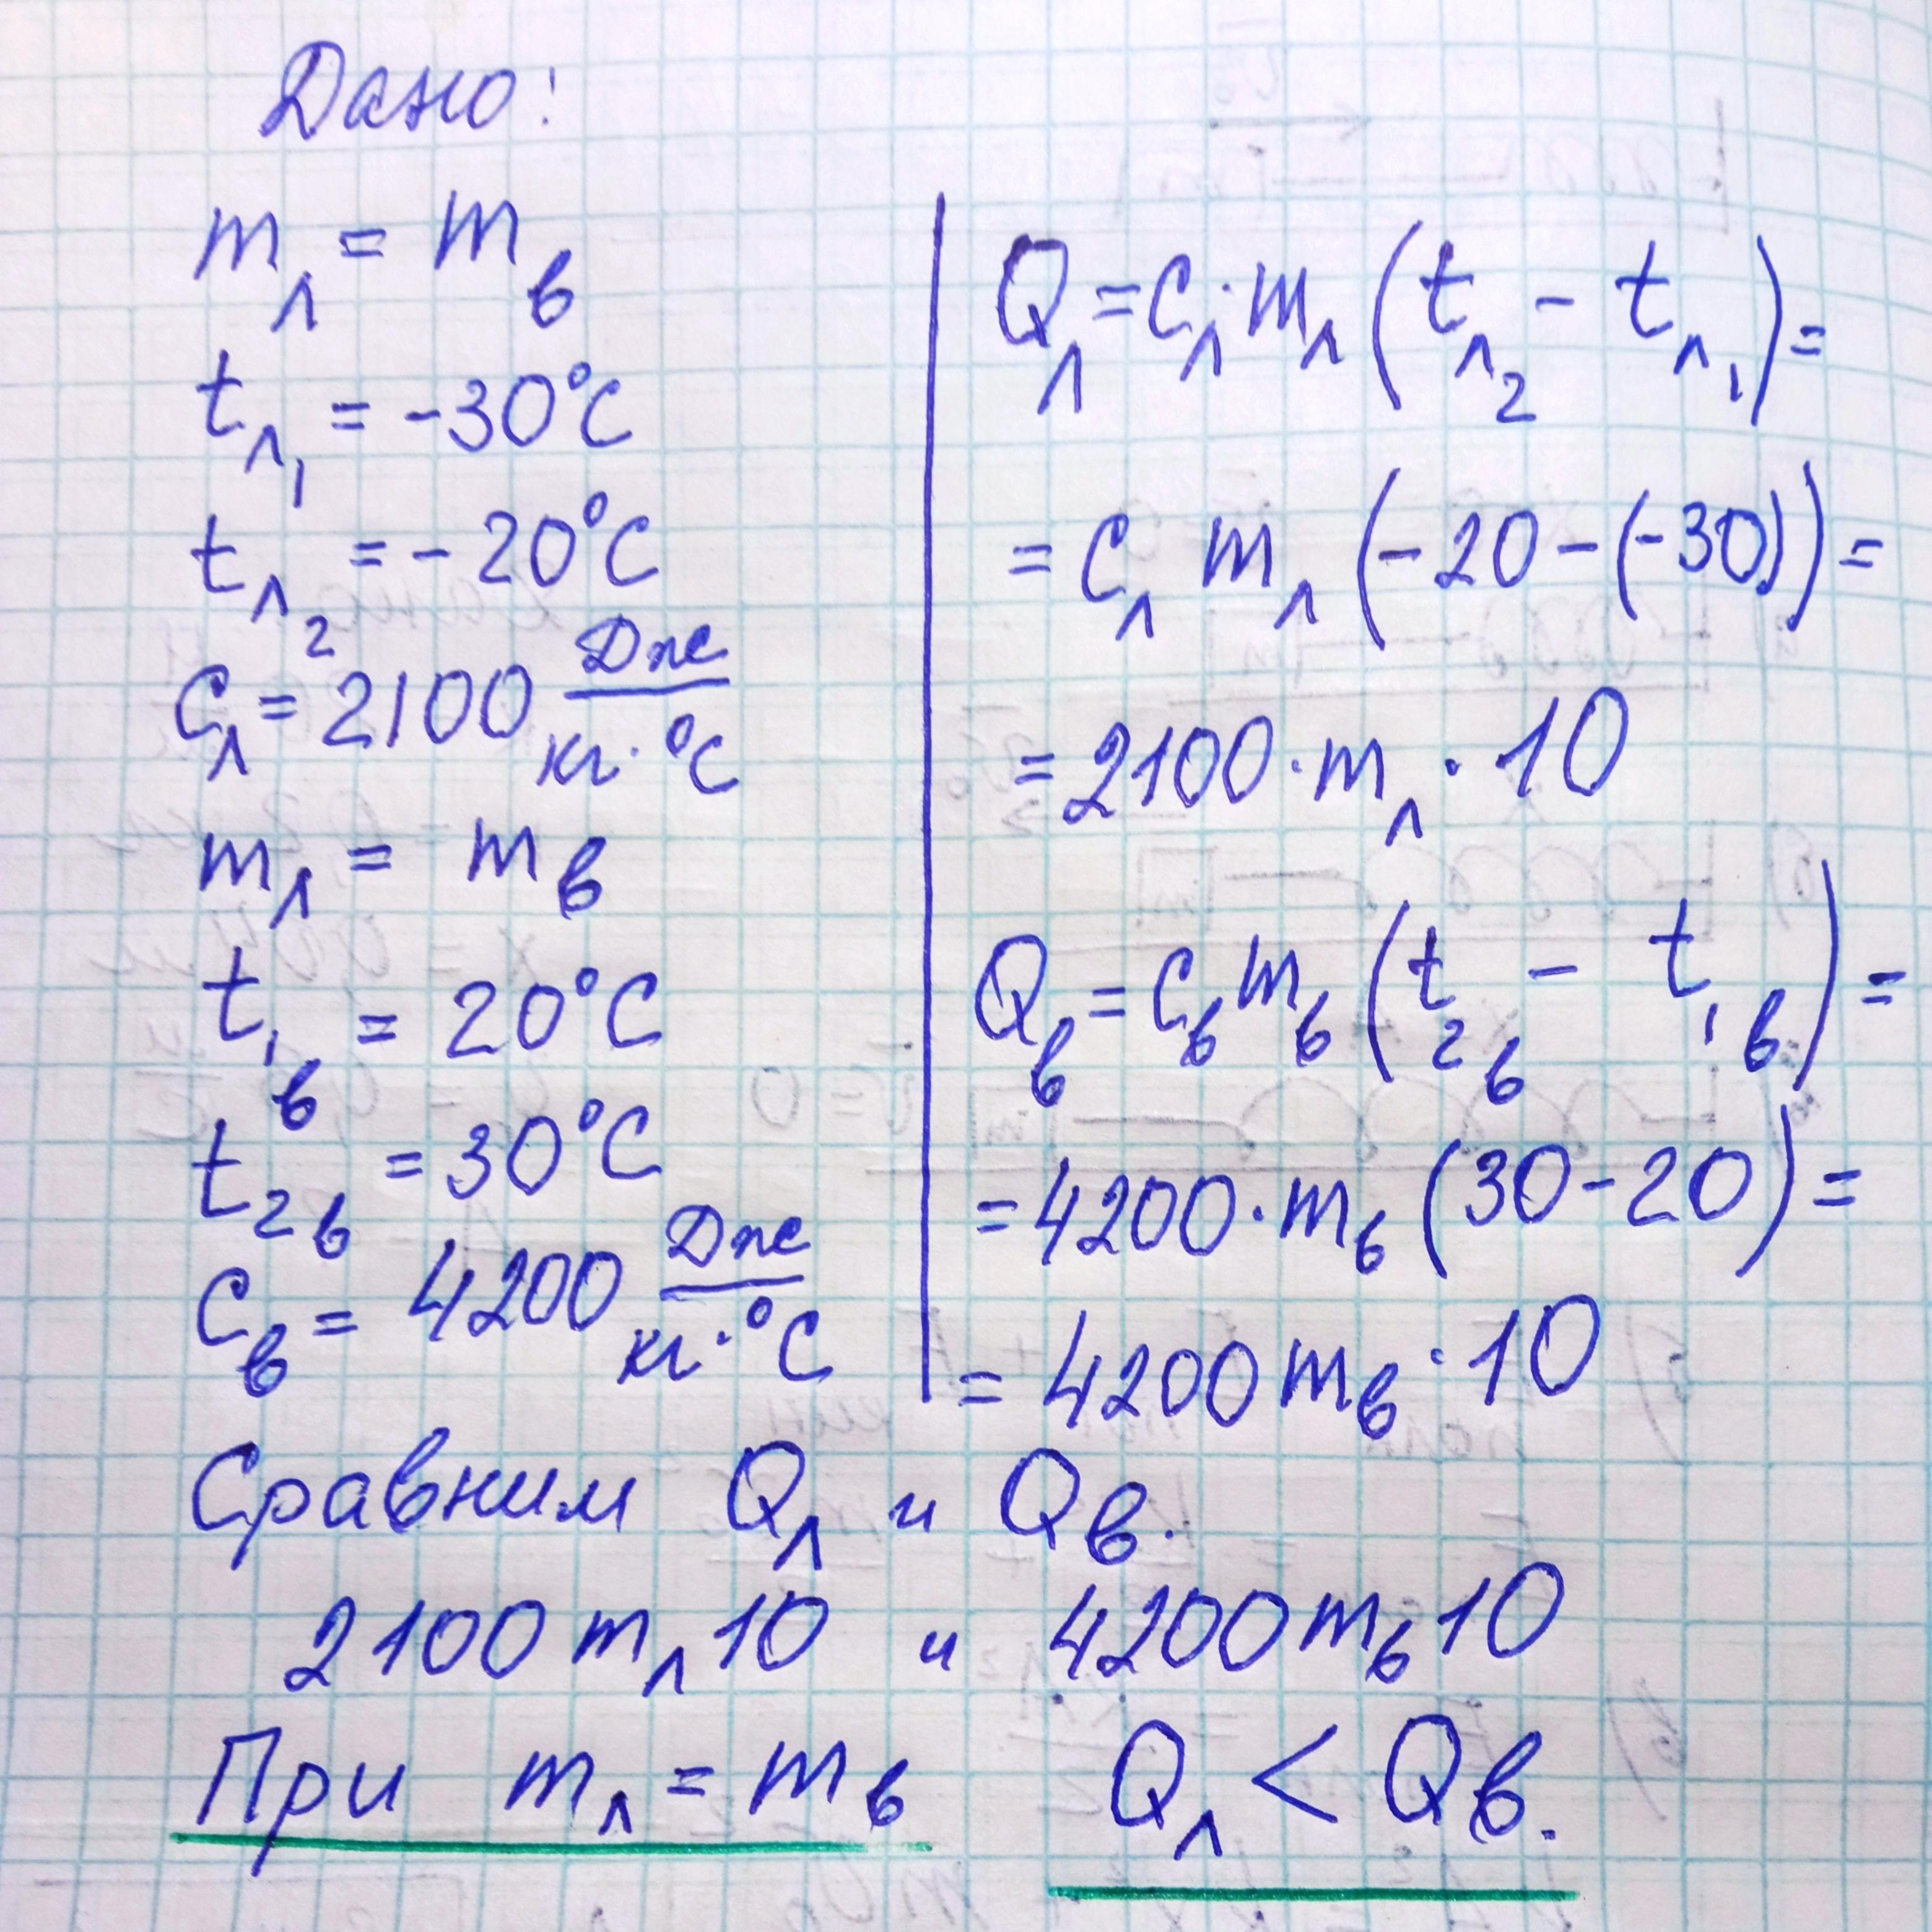 Дано:
m_л = m_в
t_л₁ = -30°C
t_л₂ = -20°C
C_л = 2100 Дж/кг·°C
m_л = m_в
t₁в = 20°C
t₂в = 30°C
C_в = 4200 Дж/кг·°C
Q_л = C_л·m_л (t_л₂ - t_л₁) =
= C_л m_л (-20-(-30)) =
= 2100·m_л·10
Q_в = C_в m_в (t₂в - t₁в) =
= 4200·m_в (30-20) =
= 4200 m_в·10
Сравним Q_л и Q_в.
2100 m_л 10 и 4200 m_в 10
При m_л = m_в Q_л < Q_в.